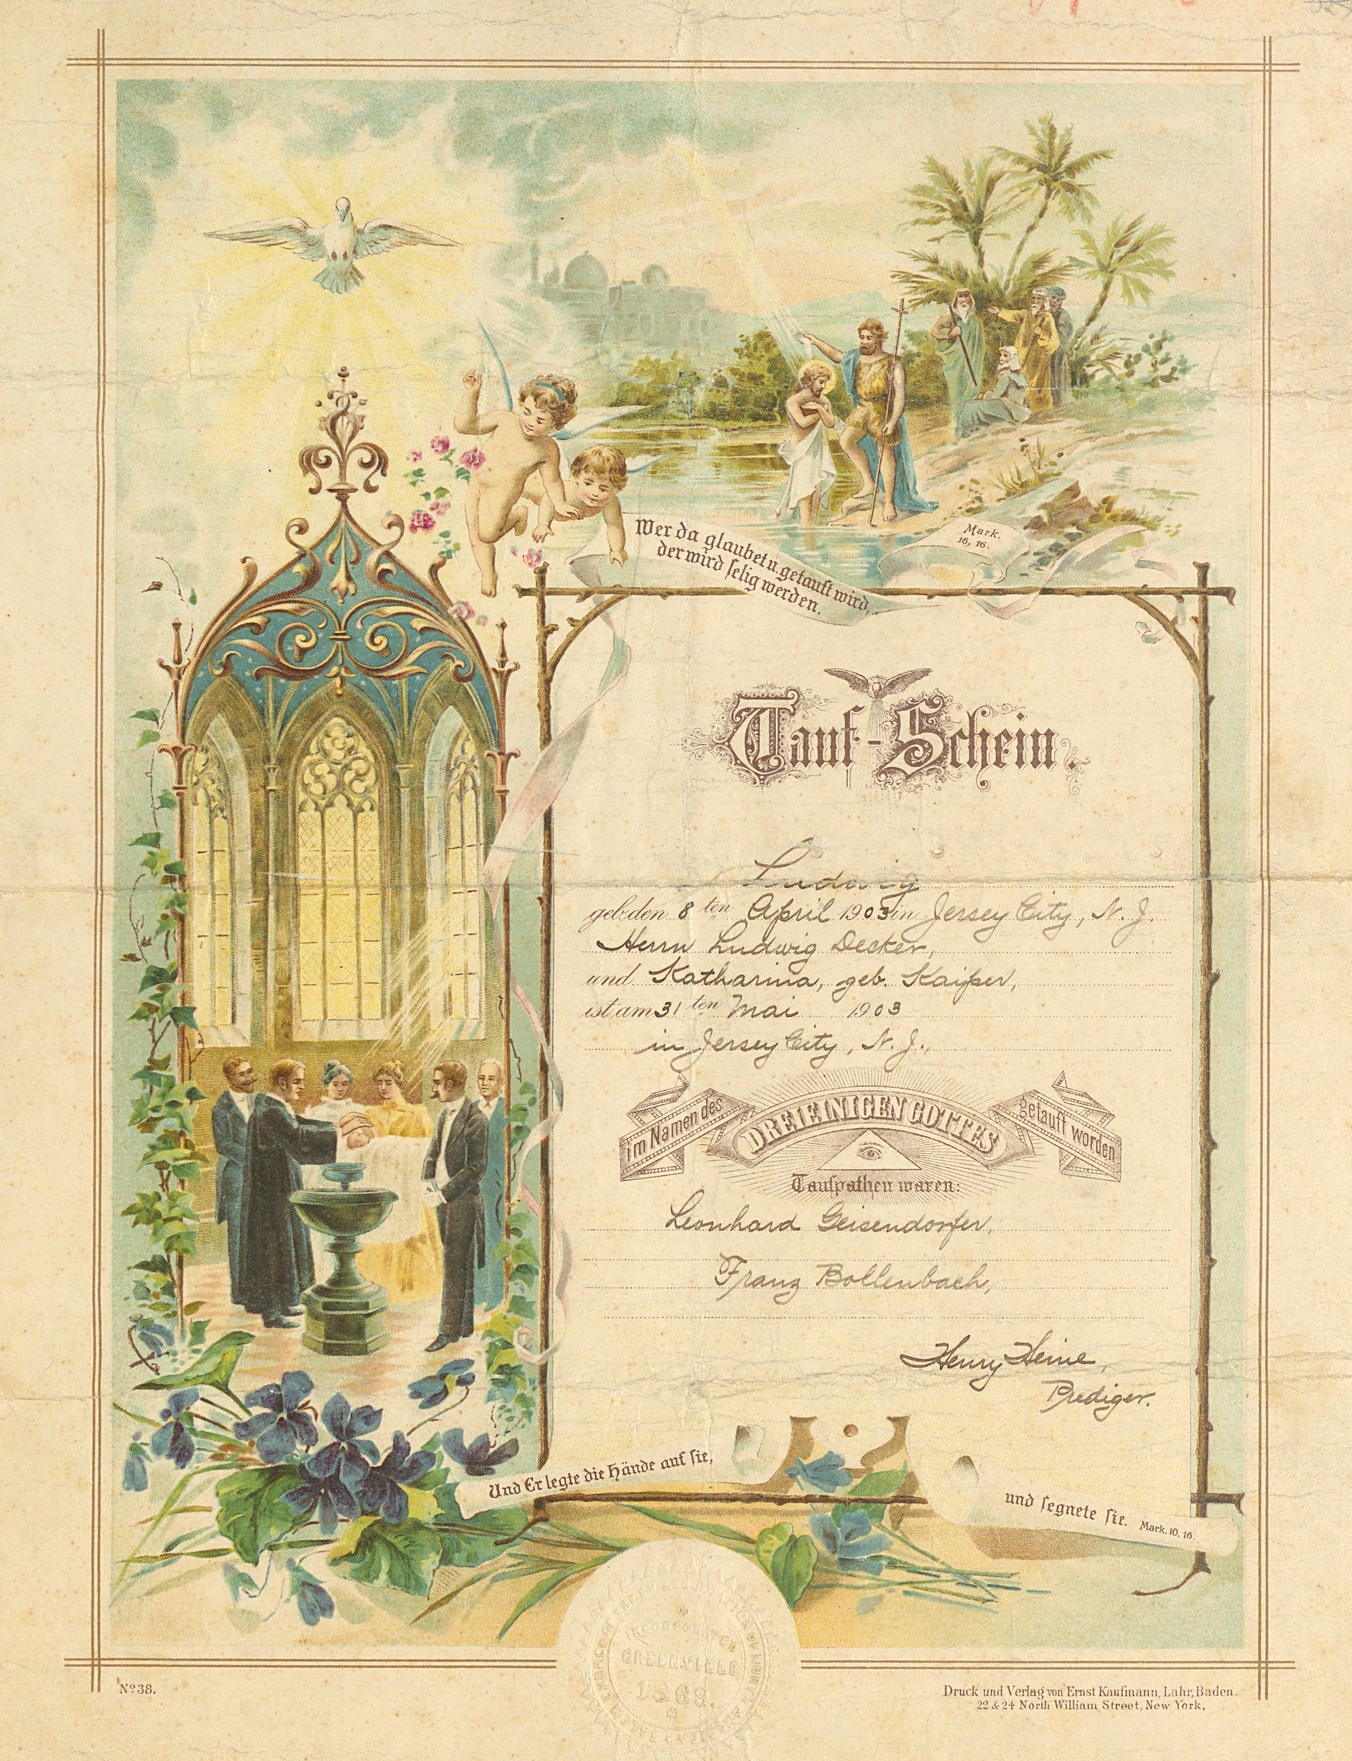 Wer da glaubet u. getauft wird,
der wird selig werden.
Mark.
16, 16.
Tauf-Schein.
Ludwig
geb. den 8ten April 1903 in Jersey City, N. J.
Herrn Ludwig Decker,
und Katharina, geb. Kaißer,
ist am 31ten Mai 1903
in Jersey City, N. J.,
im Namen des DREIEINIGEN GOTTES getauft worden
Taufpathen waren:
Leonhard Geisendorfer,
Franz Bollenbach,
Henry Heine,
Prediger.
Und Er legte die Hände auf sie,
und segnete sie. Mark. 10, 16.
INCORPORATED
GREENVILLE
1869.
No 38.
Druck und Verlag von Ernst Kaufmann, Lahr, Baden.
22 & 24 North William Street, New York.